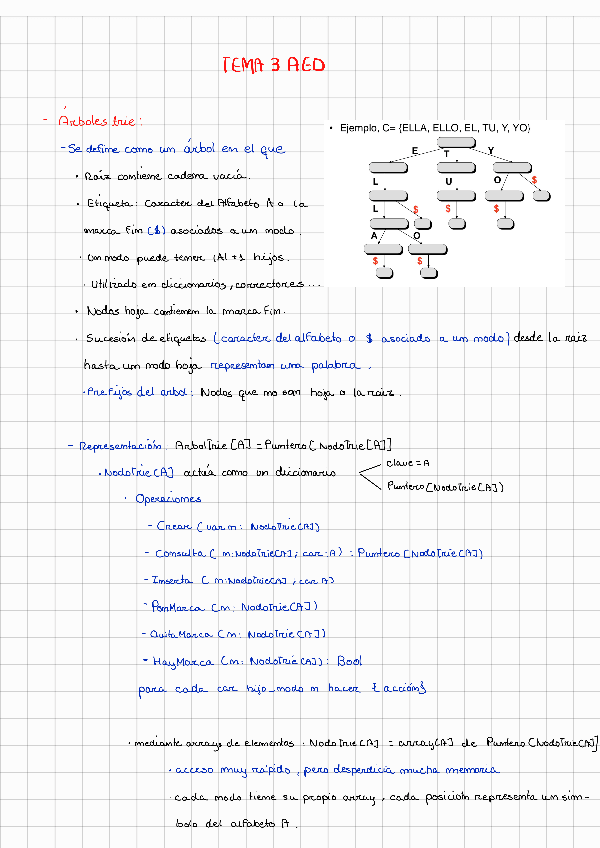 TEMA 3 AED
- Árboles trie:
- Se define como un árbol en el que
• Raiz contiene cadena vacía.
• Etiqueta: Caracter del Alfabeto A o la
marca Fin ($) asociados a un nodo.
• Un nodo puede tener |A| + 1 hijos.
• Utilizado en diccionarios, correctores...
• Nodos hoja contienen la marca Fin.
• Sucesión de etiquetas (caracter del alfabeto o $ asociado a un nodo) desde la raiz
hasta un nodo hoja representan una palabra.
• Prefijos del arbol: Nodos que no son hoja o la raiz.
• Ejemplo, C= {ELLA, ELLO, EL, TU, Y, YO}
E T Y
L U O $
L $ $ $
A O
$ $
- Representación: ArbolTrie[A] = Puntero[NodoTrie[A]]
• NodoTrie[A] actúa como un diccionario
clave = A
Puntero[NodoTrie[A]]
• Operaciones
- Crear (var n: NodoTrie[A])
- Consulta (n: NodoTrie[A]; car: A) : Puntero[NodoTrie[A]]
- Inserta (n: NodoTrie[A]; car: A)
- PonMarca (n: NodoTrie[A])
- QuitaMarca (n: NodoTrie[A])
- HayMarca (n: NodoTrie[A]): Bool
para cada car hijo_nodo n hacer {acción}
• mediante arrays de elementos: NodoTrie[A] = array[A] de Puntero[NodoTrie[A]]
• acceso muy rápido, pero desperdicia mucha memoria
• cada nodo tiene su propio array, cada posición representa un sim-
bolo del alfabeto A.